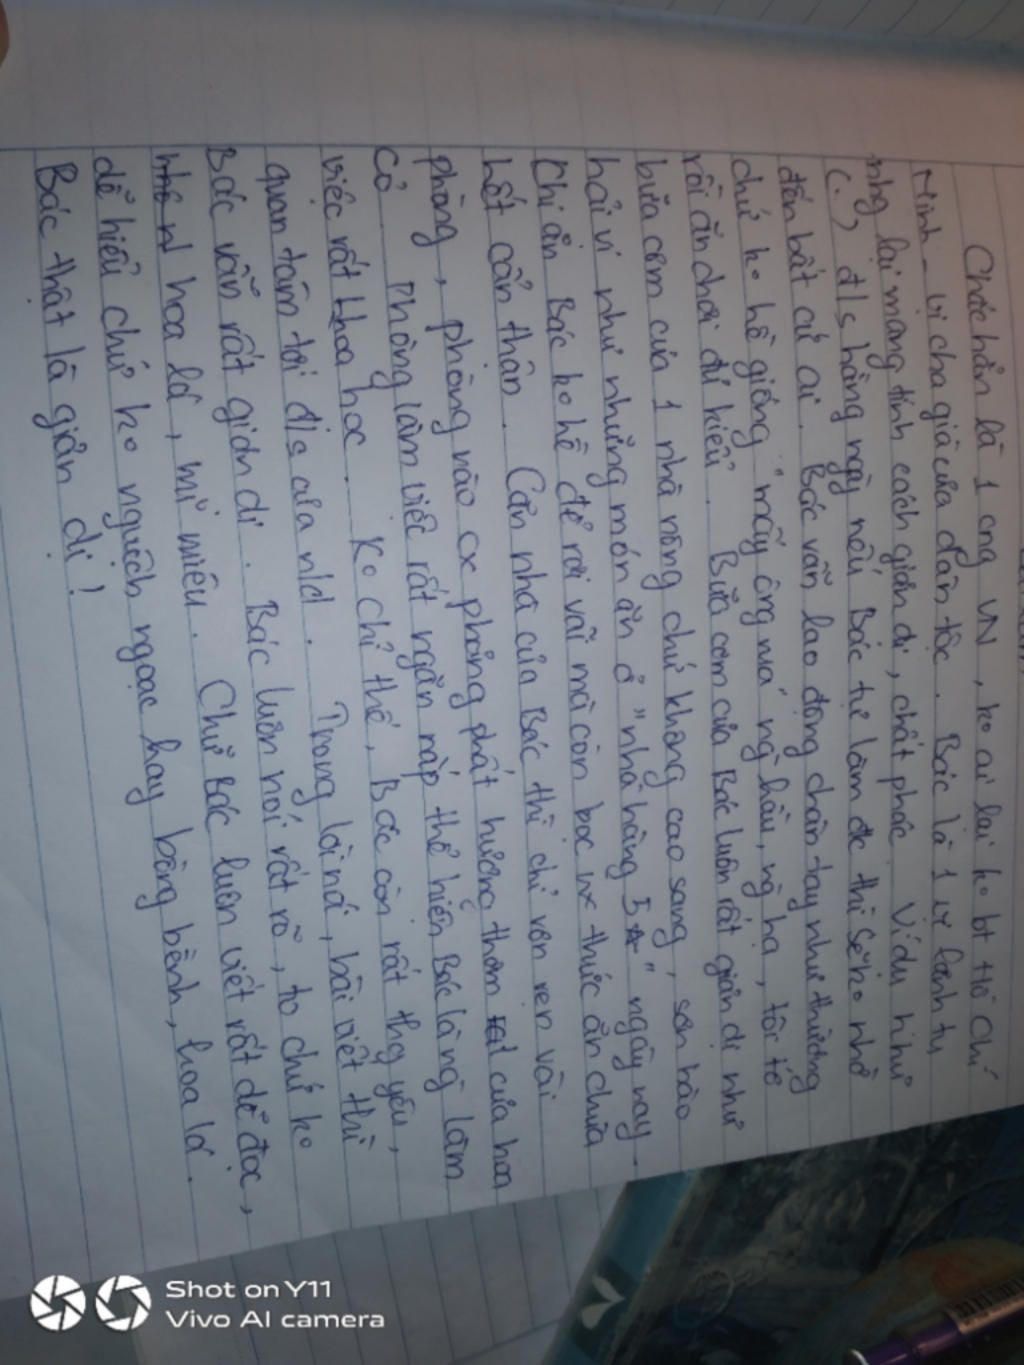 Chắc hẳn là 1 cng VN, ko ai lại ko bt Hồ Chí
Minh - vị cha già của dân tộc. Bác là 1 vị lãnh tụ
nhg lại mang tính cách giản dị, chất phác. Ví dụ như
(.) đ/s hằng ngày nếu Bác tự làm đc thì sẽ ko nhờ
đến bất cứ ai. Bác vẫn lao động chân tay như thường
chứ ko hề giống "mấy ông vua" ng hầu, ng hạ, tôi tớ
rồi ăn chơi đủ kiểu. Bữa cơm của Bác luôn rất giản dị như
bữa cơm của 1 nhà nông chứ không cao sang, sơn hào
hải vị như những món ăn ở "nhà hàng 5★" ngày nay.
Khi ăn Bác ko hề để rơi vãi mà còn bọc thức ăn chừa
hết cẩn thận. Căn nhà của Bác thì chỉ vẻn vẹn vài
phòng, phòng nào cx phảng phất hương thơm của hoa
cỏ. Phòng làm việc rất ngăn nắp thể hiện Bác là ng làm
việc rất khoa học. Ko chỉ thế, Bác còn rất thg yêu,
quan tâm tới đ/s của nld. Trong lời nói, bài viết thì
Bác vẫn rất giản dị. Bác luôn nói rất rõ, to chứ ko
hoa lá, mĩ miều. Chữ Bác luôn viết rất dễ đọc,
dễ hiểu chứ ko nguệch ngoạc hay bồng bềnh, hoa lá.
Bác thật là giản dị!
Shot on Y11
Vivo AI camera